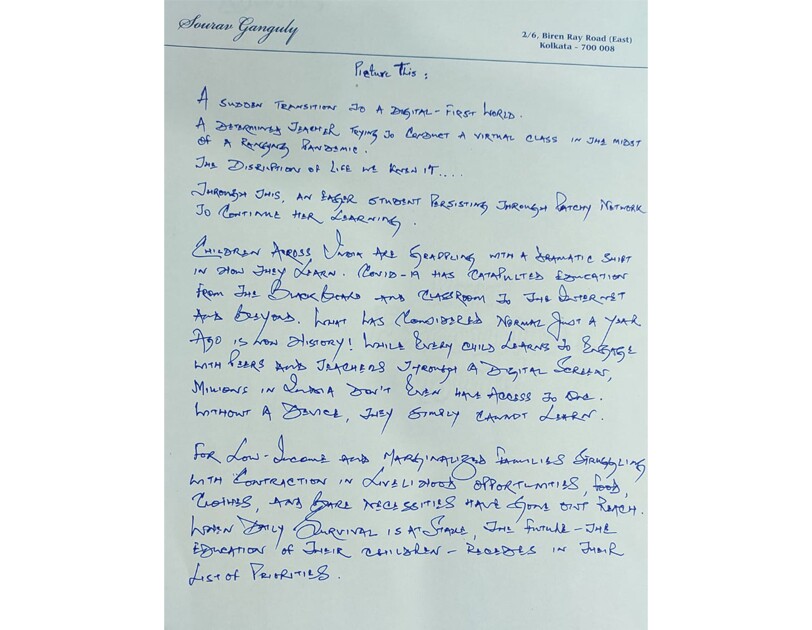 Sourav Ganguly
2/6, Biren Ray Road (East)
Kolkata - 700 008
Picture This :
A SUDDEN TRANSITION TO A DIGITAL-FIRST WORLD.
A DETERMINED TEACHER TRYING TO CONDUCT A VIRTUAL CLASS IN THE MIDST
OF A RANGING PANDEMIC.
THE DISRUPTION OF LIFE WE KNEW IT....
THROUGH THIS, AN EAGER STUDENT PERSISTING THROUGH PATCHY NETWORK
TO CONTINUE HER LEARNING.
CHILDREN ACROSS INDIA ARE GRAPPLING WITH A DRAMATIC SHIFT
IN HOW THEY LEARN. COVID-19 HAS CATAPULTED EDUCATION
FROM THE BLACKBOARD AND CLASSROOM TO THE INTERNET
AND BEYOND. WHAT WAS CONSIDERED NORMAL JUST A YEAR
AGO IS NOW HISTORY! WHILE EVERY CHILD LEARNS TO ENGAGE
WITH PEERS AND TEACHERS THROUGH A DIGITAL SCREEN,
MILLIONS IN INDIA DON'T EVEN HAVE ACCESS TO ONE.
WITHOUT A DEVICE, THEY SIMPLY CANNOT LEARN.
FOR LOW-INCOME AND MARGINALIZED FAMILIES STRUGGLING
WITH CONTRACTION IN LIVELIHOOD OPPORTUNITIES, FOOD,
CLOTHES, AND BARE NECESSITIES HAVE GONE OUT REACH.
WHEN DAILY SURVIVAL IS AT STAKE, THE FUTURE - THE
EDUCATION OF THEIR CHILDREN - RECEDES IN THEIR
LIST OF PRIORITIES.